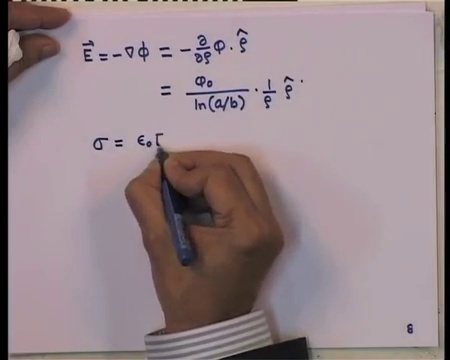 E⃗ = -∇ϕ = - ∂/∂ρ Φ · ρ̂
= Φ₀/ln(a/b) · 1/ρ ρ̂
σ = ϵ₀ [
8